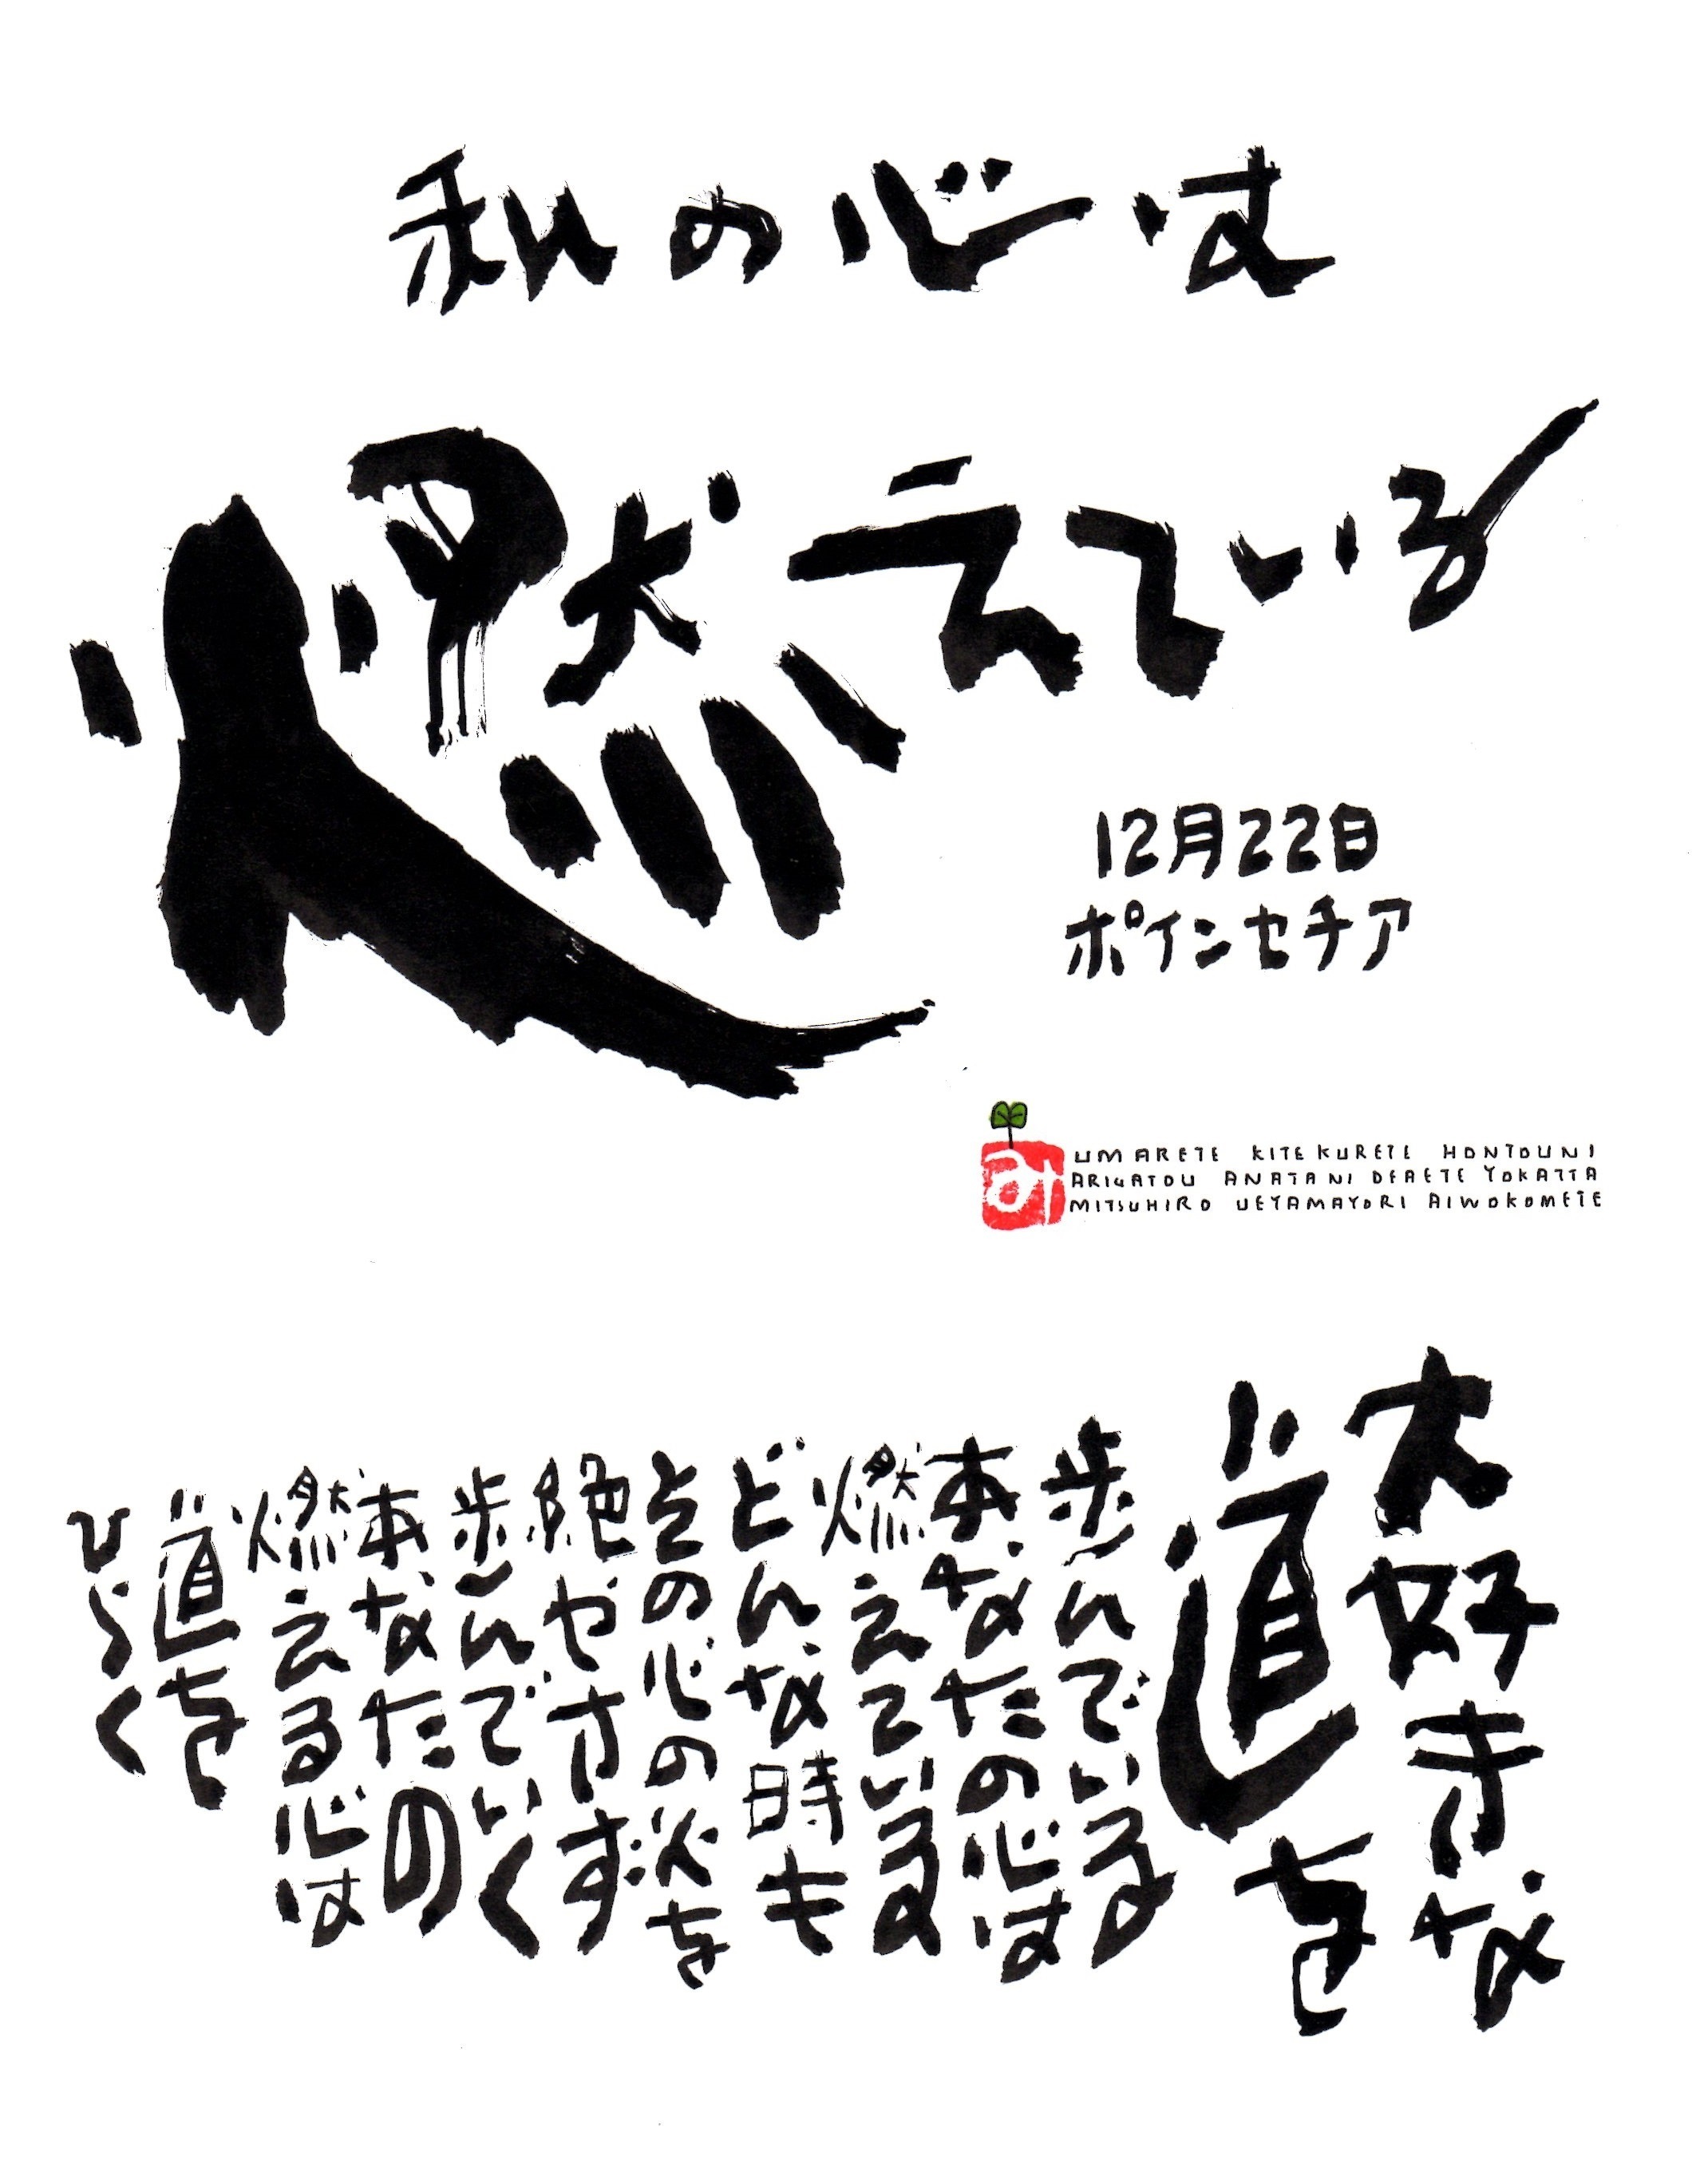 私の心は
燃えている
12月22日
ポインセチア
み
UMARETE KITEKURETE HONTOUNI
ARIGATOU ANATANI DEAETE YOKATTA
MITSUHIRO UEYAMAYORI AIWOKOMETE
大好きな
道を
歩んでいる
あなたの心は
燃えている
どんな時も
その心の火を
絶やさず
歩んでいく
あなたの
燃える心は
道を
ひらく